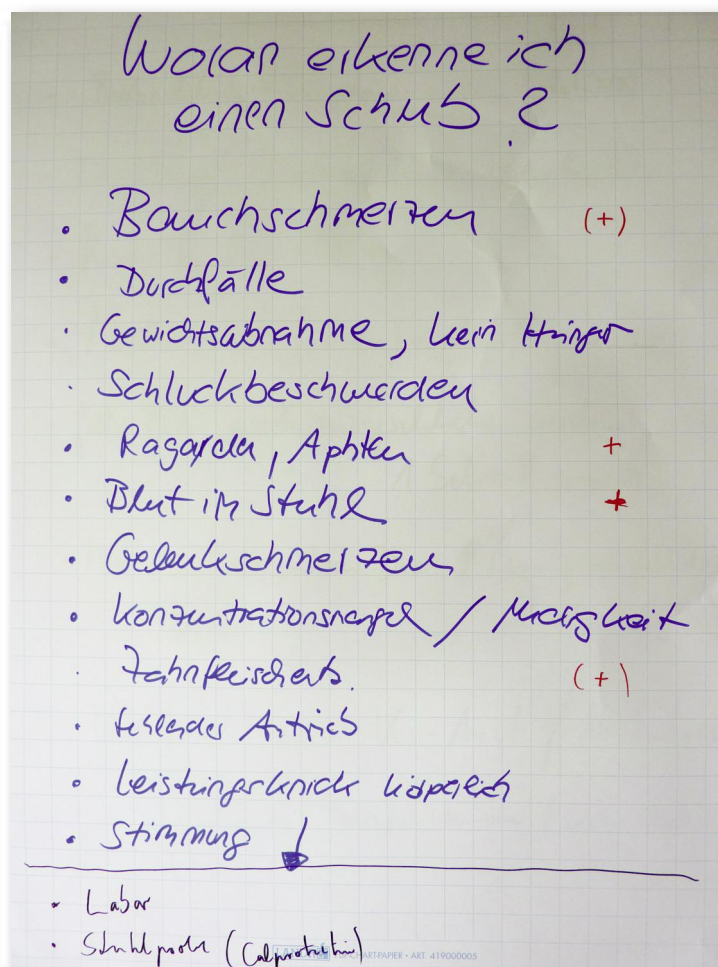 Woran erkenne ich
einen Schub?
• Bauchschmerzen (+)
• Durchfälle
• Gewichtsabnahme, kein Hunger
• Schluckbeschwerden
• Ragaden, Aphten +
• Blut im Stuhl +
• Gelenkschmerzen
• Konzentrationsmangel / Müdigkeit
• Zahnfleischentz. (+)
• fehlender Antrieb
• Leistungsknick körperlich
• Stimmung ↓
• Labor
• Stuhlprobe (Calprotectin)
CHARTPAPIER • ART. 419000005